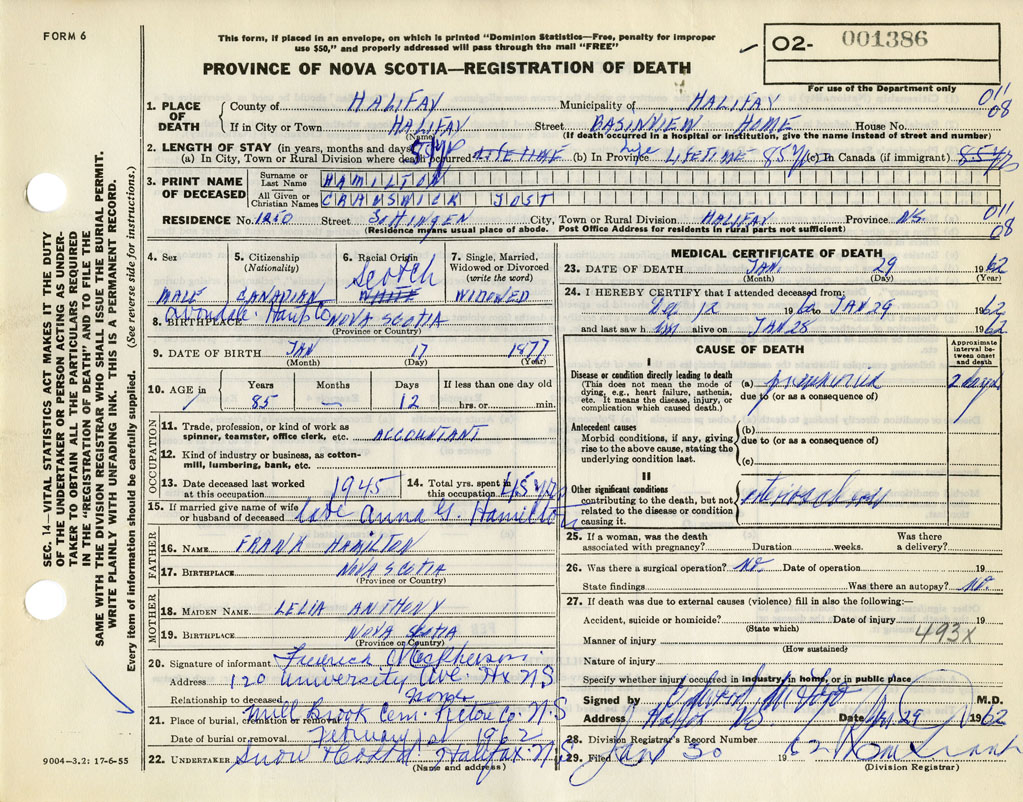 FORM 6
This form, if placed in an envelope, on which is printed "Dominion Statistics—Free, penalty for improper
use $50," and properly addressed will pass through the mail "FREE"
PROVINCE OF NOVA SCOTIA—REGISTRATION OF DEATH
02- 001386
For use of the Department only
1. PLACE OF DEATH
County of HALIFAX Municipality of HALIFAX 011
If in City or Town HALIFAX Street BASINVIEW HOME House No. 08
(Name) (If death occurred in a hospital or institution, give the name instead of street and number)
2. LENGTH OF STAY (in years, months and days)
(a) In City, Town or Rural Division where death occurred LIFETIME (b) In Province Life LIFETIME 85 (c) In Canada (if immigrant) 85
3. PRINT NAME OF DECEASED
Surname or Last Name HAMILTON
All Given or Christian Names JOST
RESIDENCE No. 1210 Street City, Town or Rural Division HALIFAX Province N.S. 011
(Residence means usual place of abode. Post Office Address for residents in rural parts not sufficient) 08
4. Sex MALE
5. Citizenship (Nationality) CANADIAN
6. Racial Origin Scotch WHITE
7. Single, Married, Widowed or Divorced (write the word) WIDOWED
Avondale
8. BIRTHPLACE NOVA SCOTIA
(Province or Country)
9. DATE OF BIRTH JAN 17 1877
(Month) (Day) (Year)
10. AGE in Years 85 Months — Days 12 If less than one day old hrs. or min.
OCCUPATION
11. Trade, profession, or kind of work as
spinner, teamster, office clerk, etc. ACCOUNTANT
12. Kind of industry or business, as cotton-
mill, lumbering, bank, etc.
13. Date deceased last worked at this occupation 1945
14. Total yrs. spent in this occupation 45 yrs
15. If married give name of wife
or husband of deceased late Anna G. Hamilton
FATHER
16. NAME FRANK HAMILTON
17. BIRTHPLACE NOVA SCOTIA
(Province or Country)
MOTHER
18. MAIDEN NAME LELIA ANTHONY
19. BIRTHPLACE NOVA SCOTIA
(Province or Country)
20. Signature of informant
Address 120 University Ave. Hx NS
Relationship to deceased
21. Place of burial, cremation or removal Mill Brook Cem. Pictou Co. N.S
Date of burial or removal February 1st 1962
22. UNDERTAKER Snow Halifax N.S
(Name and address)
9004—3.2: 17-6-55
MEDICAL CERTIFICATE OF DEATH
23. DATE OF DEATH JAN. 29 1962
(Month) (Day) (Year)
24. I HEREBY CERTIFY that I attended deceased from:
Dec 12 19 61 to JAN 29 1962
and last saw him alive on JAN 28 1962
CAUSE OF DEATH
Approximate interval between onset and death
I
Disease or condition directly leading to death
(This does not mean the mode of dying, e.g., heart failure, asthenia, etc. It means the disease, injury, or complication which caused death.)
(a) pneumonia 2 days
due to (or as a consequence of)
Antecedent causes
Morbid conditions, if any, giving rise to the above cause, stating the underlying condition last.
(b)
due to (or as a consequence of)
(c)
II
Other significant conditions
contributing to the death, but not related to the disease or condition causing it.
25. If a woman, was the death
associated with pregnancy? Duration weeks. Was there a delivery?
26. Was there a surgical operation? No. Date of operation 19
State findings Was there an autopsy? No.
27. If death was due to external causes (violence) fill in also the following:—
Accident, suicide or homicide? Date of injury 19
(State which) 493X
Manner of injury
(How sustained)
Nature of injury
Specify whether injury occurred in industry, in home, or in public place
Signed by M.D.
Address Halifax N.S. Date Jan 29 1962
28. Division Registrar's Record Number
29. Filed Jan 30 19 62
(Division Registrar)
SEC. 14—VITAL STATISTICS ACT MAKES IT THE DUTY
OF THE UNDERTAKER OR PERSON ACTING AS UNDER-
TAKER TO OBTAIN ALL THE PARTICULARS REQUIRED
IN THE "REGISTRATION OF DEATH" AND TO FILE THE
SAME WITH THE DIVISION REGISTRAR WHO SHALL ISSUE THE BURIAL PERMIT.
WRITE PLAINLY WITH UNFADING INK. THIS IS A PERMANENT RECORD.
Every item of information should be carefully supplied. (See reverse side for instructions.)